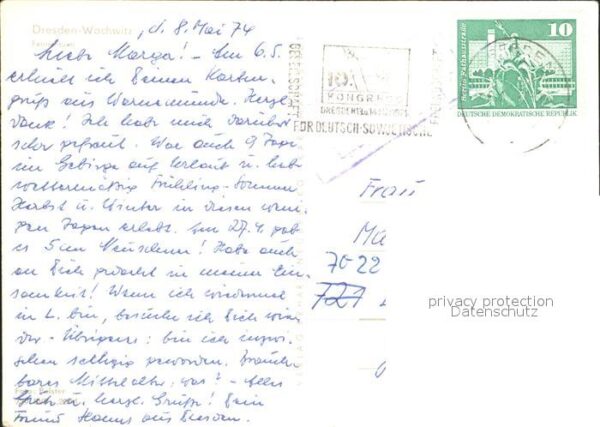 Dresden-Wachwitz
, d. 8. Mai 74
Liebe Marga! – Am 6.5.
erhielt ich Deinen Karten-
gruß aus Warnemünde. Herzl.
Dank! Ich habe mich darüber
sehr gefreut. War auch 9 Tage
im Gebirge auf Urlaub u. habe
wettermäßig Frühling-Sommer
Herbst u. Winter in diesen weni-
gen Tagen erlebt. Am 27.4. gab
es 5 cm Neuschnee! Habe auch
an Dich gedacht in meiner Ein-
samkeit! Wenn ich wiedermal
in L. bin, besuche ich Dich wie-
der. Übrigens: bin ich inzwi-
schen geworden.
bares Mittelalter, was? – Alles
Gute u. herzl. Grüße! Dein
Freund Hanns aus Dresden.
10.
KONGRESS
DRESDEN
FÜR DEUTSCH-SOWJETISCHE
10
DEUTSCHE DEMOKRATISCHE REPUBLIK
Frau
Ma
7022
721
privacy protection
Datenschutz